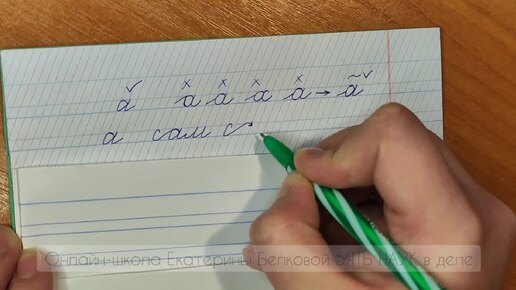 а а а а а → а
а сам с
Онлайн-школа Екатерины Белковой 5ЯТЬ НАУК в деле